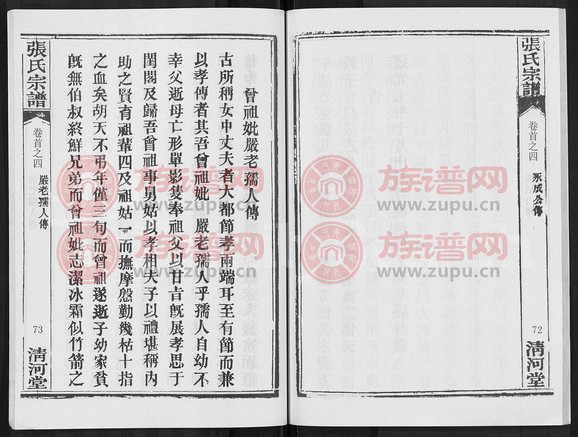 張氏宗譜
卷首之四
永成公傳
72
清河堂
曾祖妣嚴老孺人傳
古所稱女中丈夫者大都節孝兩端耳至有節而兼
以孝傳者其吾曾祖妣 嚴老孺人乎孺人自幼不
幸父逝母亡形單影隻奉祖父以甘旨既展孝思于
閨閣及歸吾曾祖事男姑以孝相夫子以禮堪稱内
助之賢育祖輩四及祖姑一而撫摩慇勤幾枯十指
之血矣胡天不弔年僅三旬而曾祖遂逝子幼家貧
既無伯叔終鮮兄弟而曾祖妣志潔冰霜似竹箭之
張氏宗譜
卷首之四
嚴老孺人傳
73
清河堂
族谱网
www.zupu.cn
族谱网
www.zupu.cn